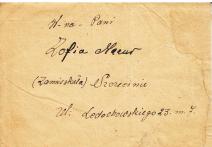 W-na - Pani
Zofia Mazur
(Zamieszkała) Szczecinie
Ul. Ledóchowskiego 23. m. 7